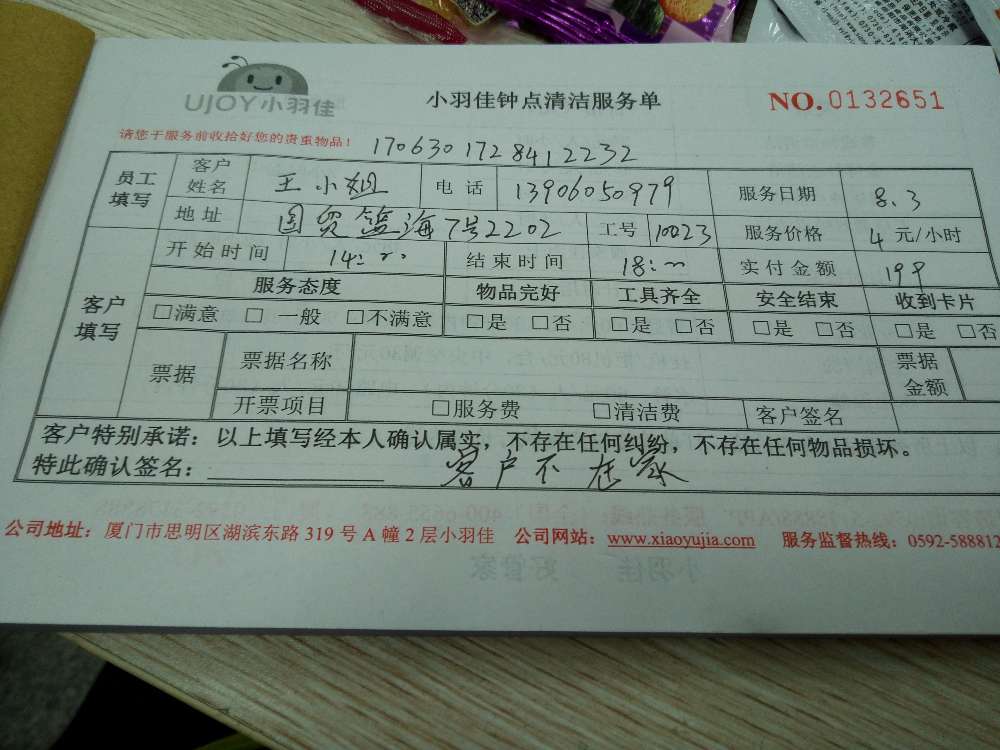 UJOY小羽佳
小羽佳钟点清洁服务单
NO.0132651
请您于服务前收拾好您的贵重物品！
170630172841 2232
员工填写 客户姓名 王小姐 电话 13906050979 服务日期 8.3
地址 国贸蓝海7号2202 工号 10023 服务价格 4 元/小时
客户填写 开始时间 14: 结束时间 18: 实付金额
服务态度 物品完好 工具齐全 安全结束 收到卡片
□满意 □一般 □不满意 □是 □否 □是 □否 □是 □否 □是 □否
票据 票据名称 票据金额
开票项目 □服务费 □清洁费 客户签名
客户特别承诺：以上填写经本人确认属实，不存在任何纠纷，不存在任何物品损坏。
特此确认签名： 客户不在家
公司地址：厦门市思明区湖滨东路 319 号 A 幢 2 层小羽佳 公司网站：www.xiaoyujia.com 服务监督热线：0592-588812